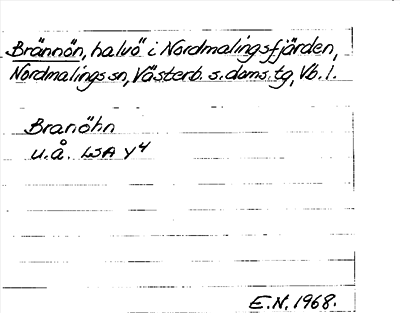 Brännön, halvö i Nordmalingsfjärden,
Nordmalings sn, Västerb. s. doms. tg, Vb. l.
Branöhn
u.å. LSA Y4
E.N. 1968.